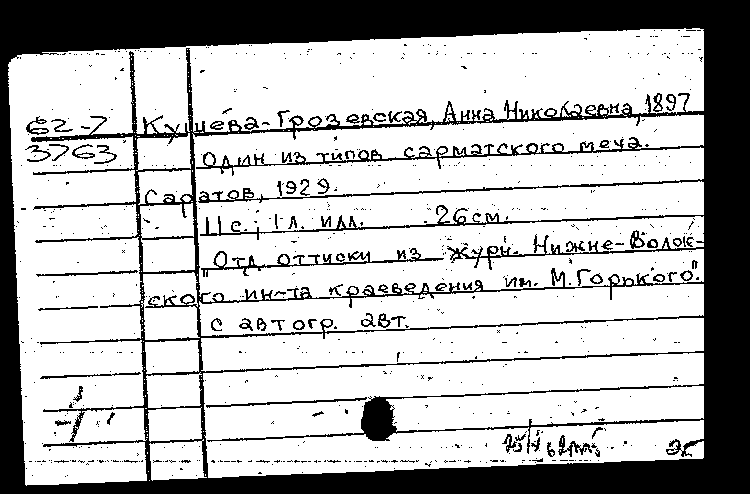 62-7 Кушева-Грозевская, Анна Николаевна, 1897
3763 Один из типов сарматского меча.
Саратов, 1929.
11 с.; 1 л. илл. 26 см.
"Отд. оттиски из журн. Нижне-Волж-
ского ин-та краеведения им. М.Горького".
с автогр. авт.